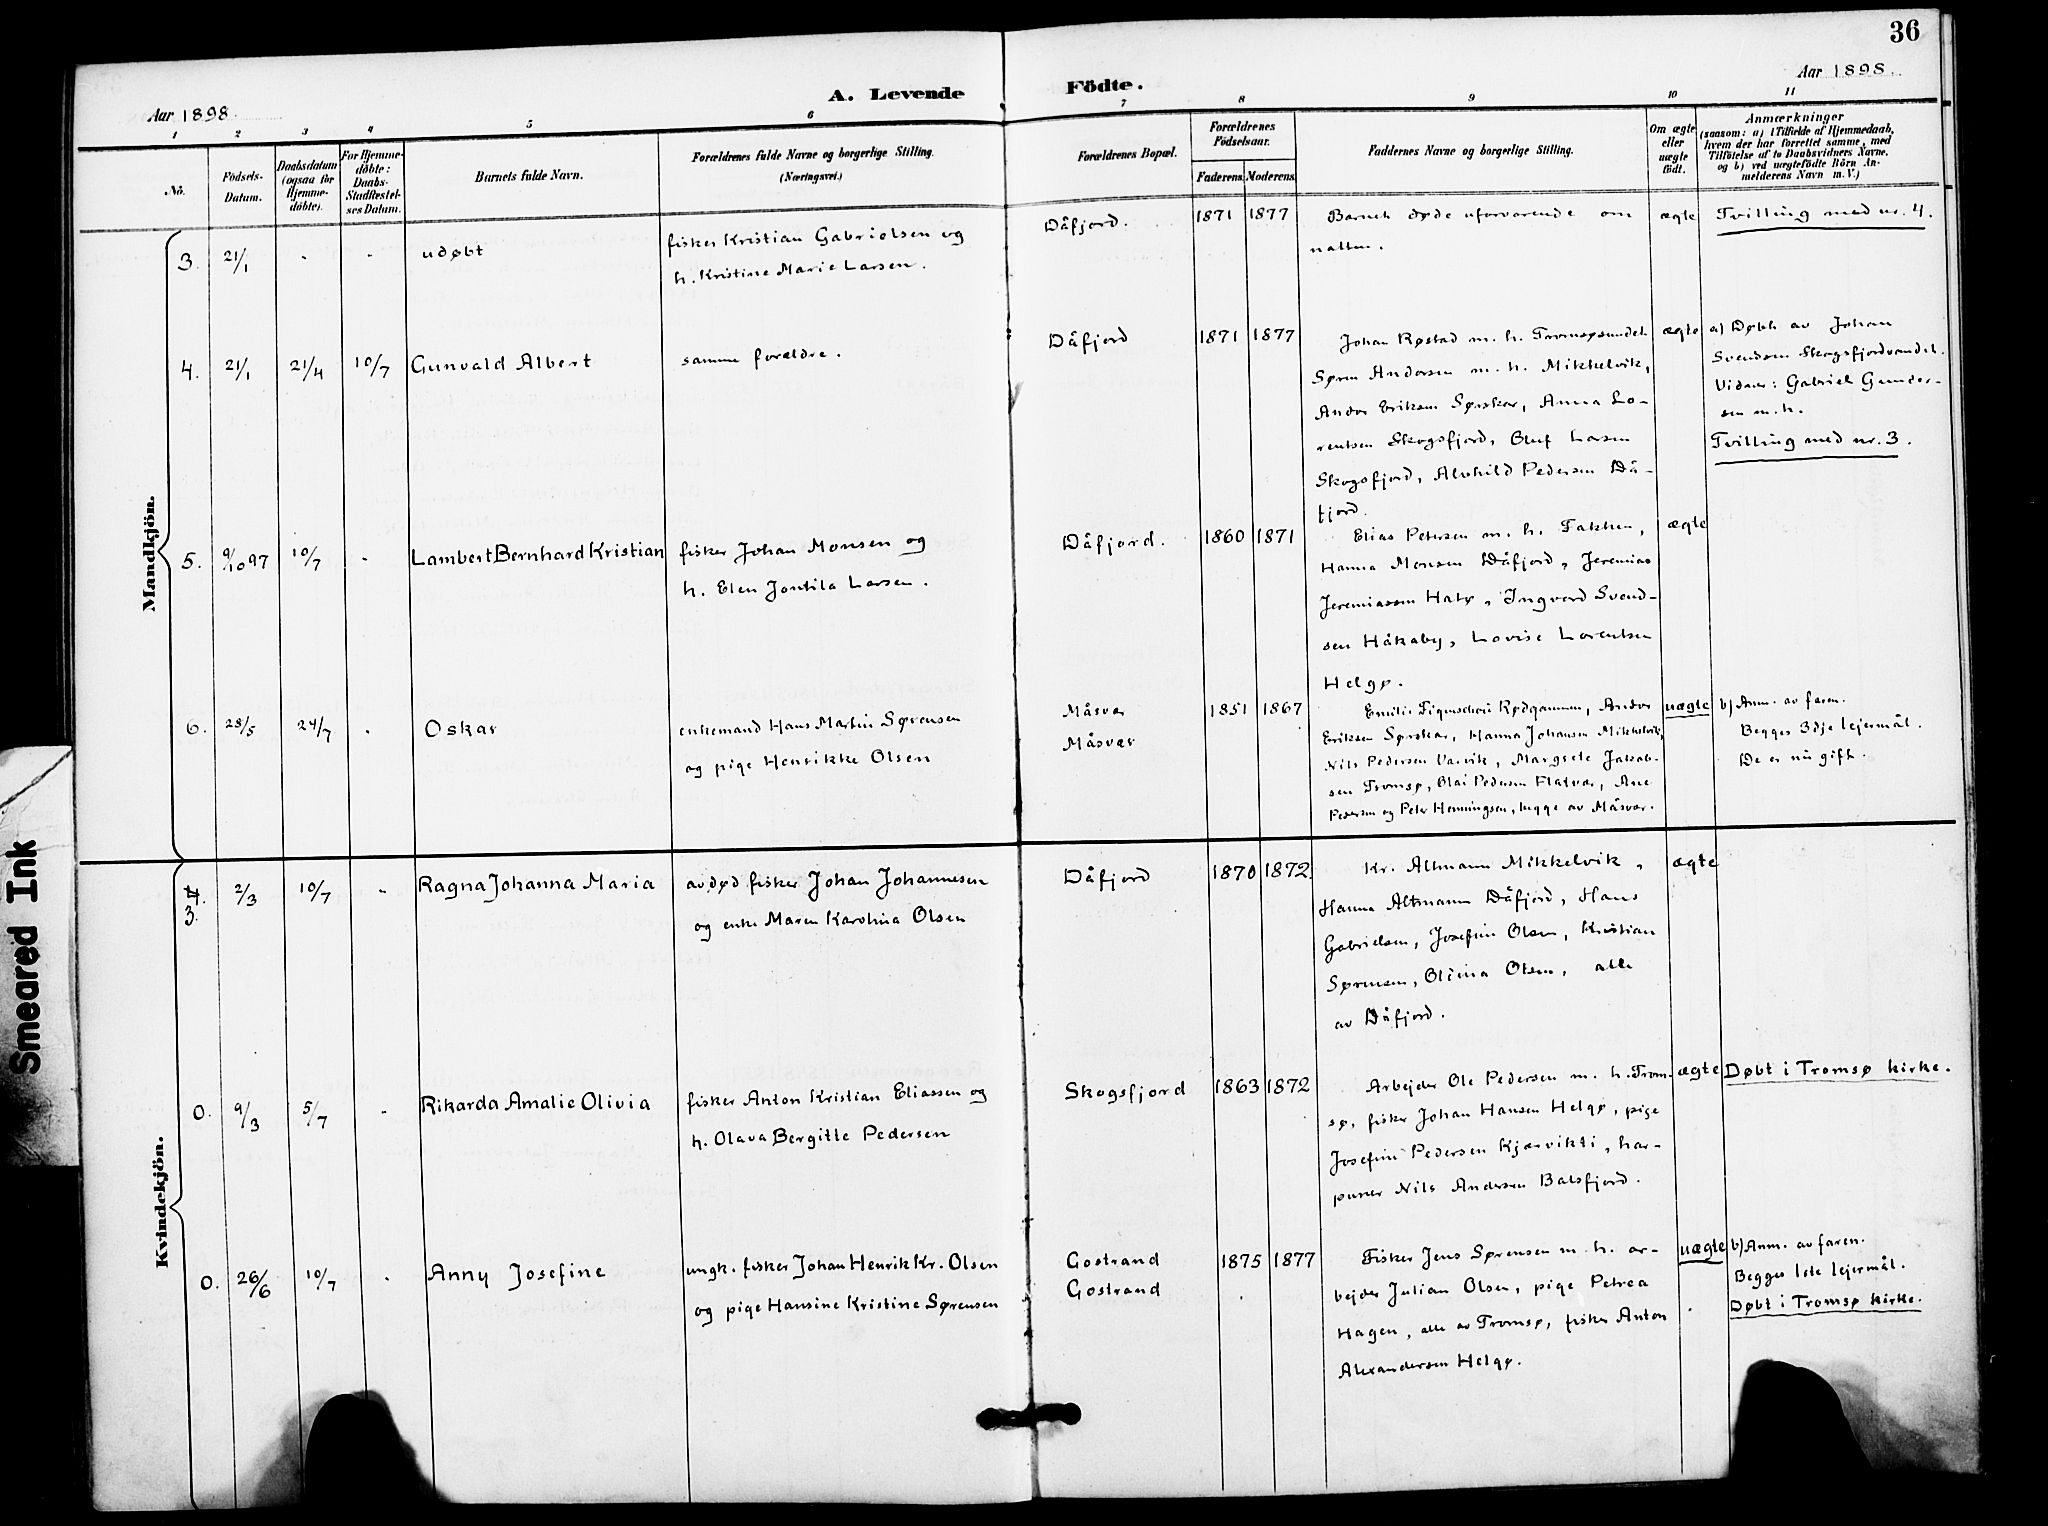 36
Aar 1898.
A. Levende
Födte.
Aar 1898.
1
2
3
4
5
6
7
8
9
10
11
No.
Födsels-
Datum.
Daabsdatum
(ogsaa for
Hjemme-
döbte).
For Hjemme-
döbte:
Daabs-
Stadfæstel-
ses Datum.
Barnets fulde Navn.
Forældrenes fulde Navne og borgerlige Stilling.
(Næringsvei.)
Forældrenes Bopæl.
Forældrenes
Födselsaar.
Faderens.
Moderens.
Faddernes Navne og borgerlige Stilling.
Om ægte
eller
uægte
födt.
Anmærkninger
(saasom: a) i Tilfælde af Hjemmedaab,
hvem der har forrettet samme, med
Tilföielse af to Daabsvidners Navne,
og b) ved uægtefödte Börn An-
melderens Navn m. V.)
Mandkjön.
3. 21/1 - - udøbt
fisker Kristian Gabrielsen og
h. Kristine Marie Larsen.
Dåfjord. 1871 1877
Barnet døde uforvarende om
natten.
ægte
Tvilling med nr. 4.
4. 21/1 21/4 10/7 Gunvald Albert
samme forældre.
Dåfjord 1871 1877
Johan Røstad m. h. Tromsøsundet
Søren Andersen m. h. Mikkelvik,
Andor Eriksen Sørskar, Anna Lo-
rentsen Skogsfjord, Oluf Larsen
Skogsfjord, Alvhild Pedersen Då-
fjord.
ægte
a) Døbt av Johan
Svendsen Skogsfjordvandet.
Vidner: Gabriel Gunder-
sen m. h.
Tvilling med nr. 3.
5. 9/10 97 10/7 - Lambert Bernhard Kristian
fisker Johan Monsen og
h. Elen Jontila Larsen.
Dåfjord. 1860 1871
Elias Petersen m. h. Fakken,
Hanna Monsen Dåfjord, Jeremias
Jeremiassen Hatø, Ingvard Svend-
sen Håkaby, Lovise Lorentsen
Helgø.
ægte
6. 28/5 24/7 - Oskar
enkemand Hans Martin Sørensen
og pige Henrikke Olsen
Måsvær
Måsvær
1851 1867
Emilie Rødgammen, Andor
Eriksen Sørskar, Hanna Johansen Mikkelvik,
Nils Pedersen Vasvik, Margrete Jakob-
sen Tromsø, Olai Pedersen Flatvær, Ane
Pedersen og Peter Henningsen, begge av Måsvær.
uægte
b) Anm. av faren.
Begges 3dje lejermål.
De er nu gift.
Kvindekjön.
4.
3. 2/3 10/7 - Ragna Johanna Maria
avdød fisker Johan Johannesen
og enke Maren Karolina Olsen
Dåfjord 1870 1872
Kr. Altmann Mikkelvik,
Hanna Altmann Dåfjord, Hans
Gabrielsen, Josefine Olsen, Kristian
Sørensen, Olina Olsen, alle
av Dåfjord.
ægte
0. 9/3 5/7 - Rikarda Amalie Olivia
fisker Anton Kristian Eliassen og
h. Olava Bergitte Pedersen
Skogsfjord 1863 1872
Arbejder Ole Pedersen m. h. Trom-
sø, fisker Johan Hansen Helgø, pige
Josefine Pedersen Kjærvikti, har-
puner Nils Andersen Balsfjord.
ægte
Døbt i Tromsø kirke.
0. 26/6 10/7 - Anny Josefine
ungk. fisker Johan Henrik Kr. Olsen
og pige Hansine Kristine Sørensen
Gostrand
Gostrand
1875 1877
Fisker Jens Sørensen m. h. ar-
bejder Julian Olsen, pige Petrea
Hagen, alle av Tromsø, fisker Anton
Alexandersen Helgø.
uægte
b) Anm. av faren.
Begges 1ste lejermål.
Døbt i Tromsø kirke.
Smeared Ink